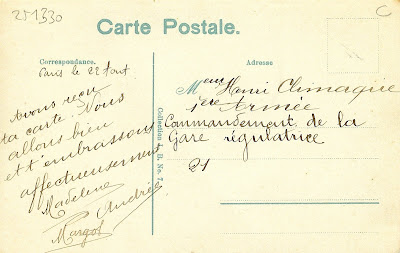 251330
C
Carte Postale.
Correspondance.
Adresse
Paris le 22 Aout
Avons reçu
ta carte. Nous
allons bien
et t'embrassons
affectueusement
Madeleine
Andrée
Margot
Collection L. B. No. 7.
Henri Climaque
1ère Armée
Commandement de la
Gare régulatrice
21